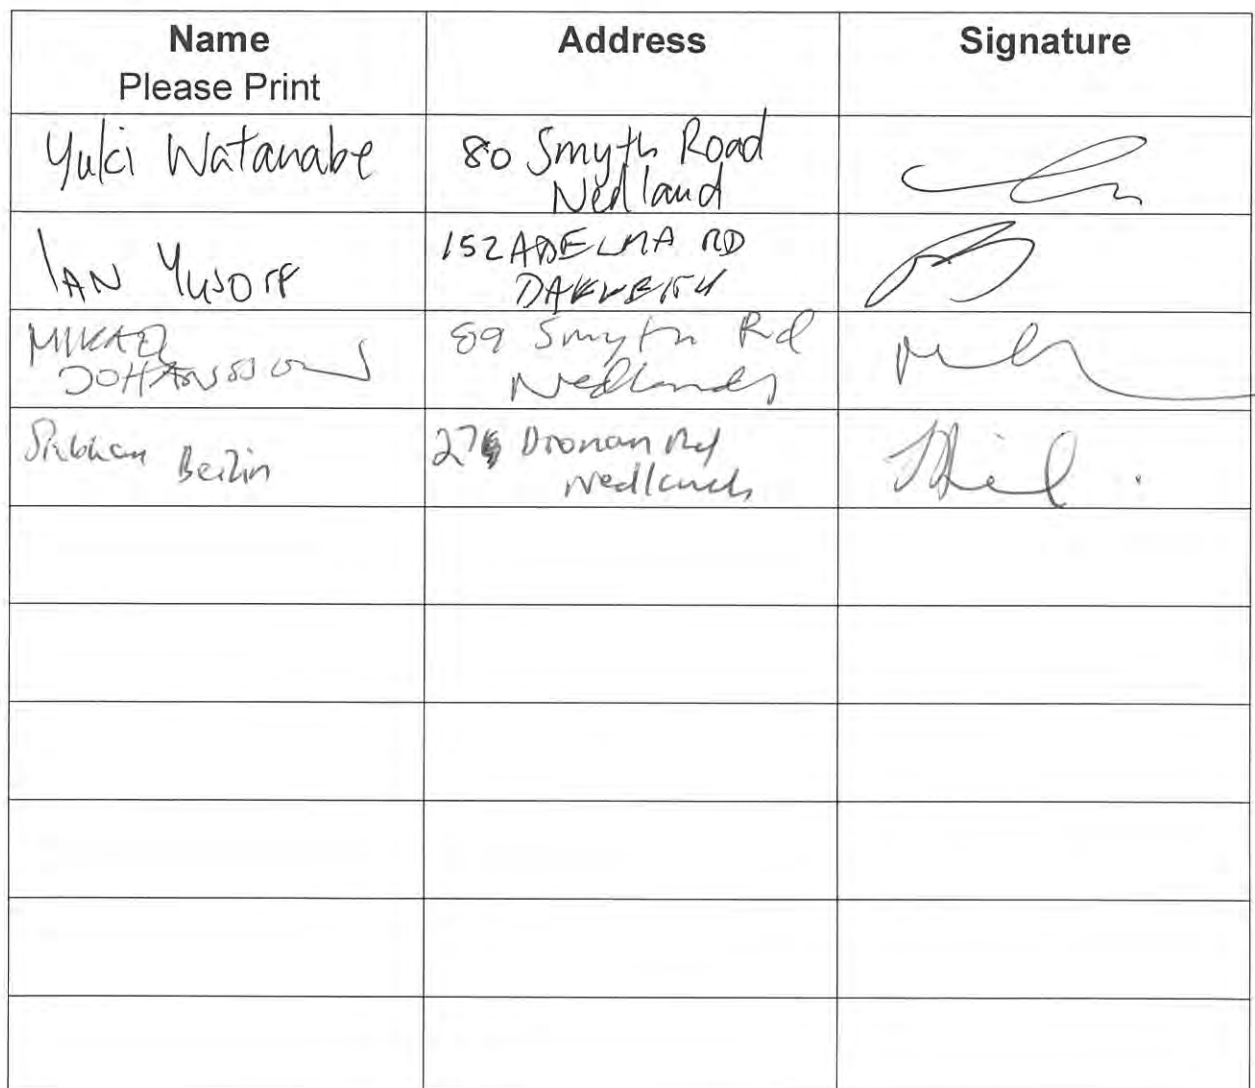 Name
Please Print
Address
Signature
Yuki Watanabe
80 Smyth Road
Nedland
IAN YUSOFF
152 ADELMA RD
MIKAEL
JOHANSSON
89 Smyth Rd
Nedlands
Siobhan
Beilin
Rd
Nedlands